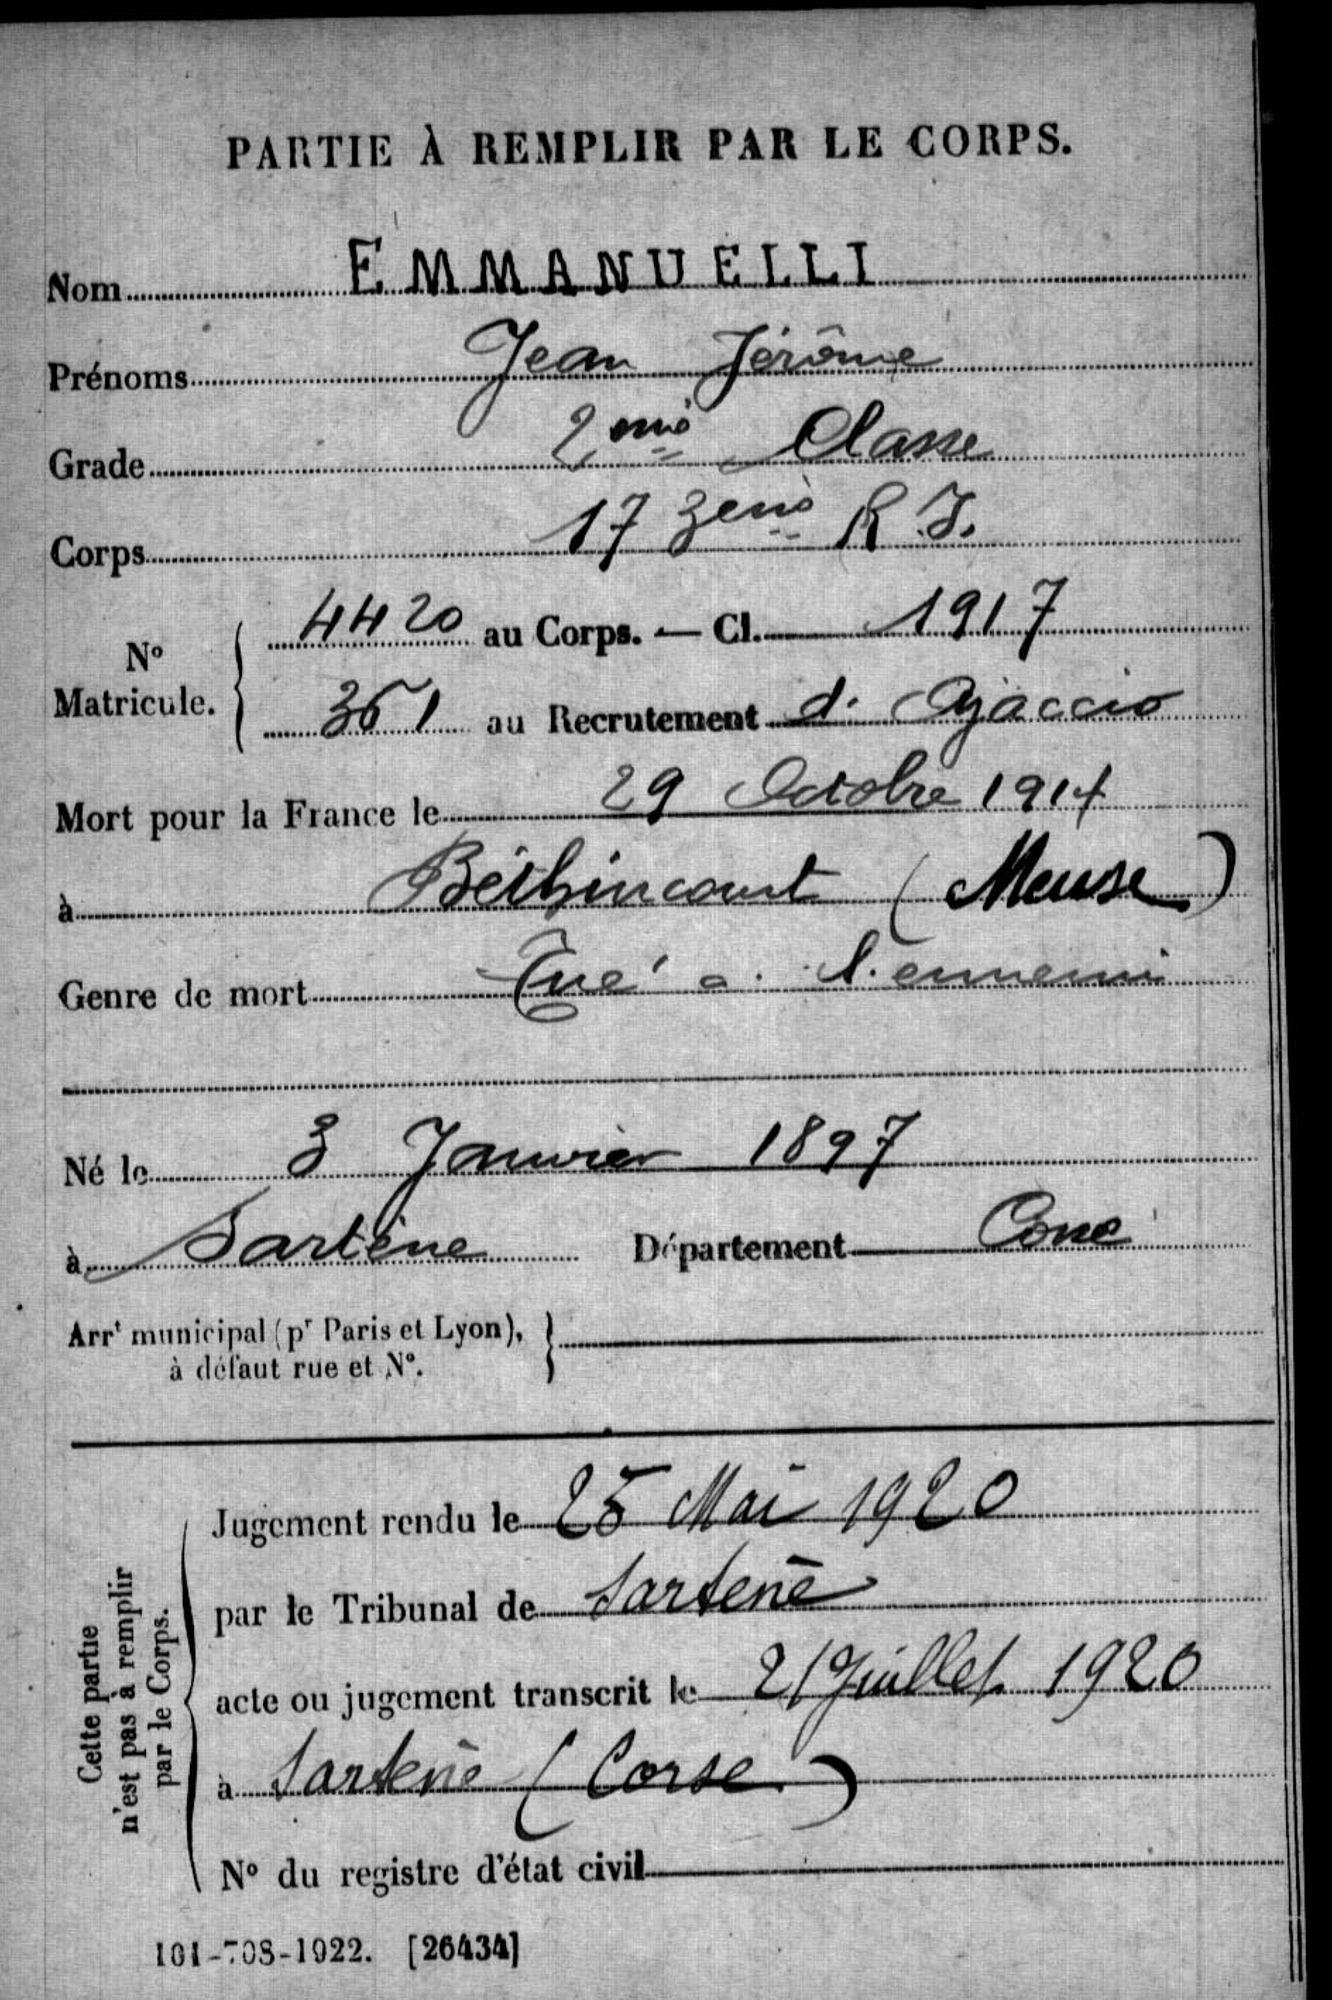 PARTIE À REMPLIR PAR LE CORPS.
Nom EMMANUELLI
Prénoms Jean Jérôme
Grade 2ème Classe
Corps 173ème R.I.
N° Matricule. 4420 au Corps. — Cl. 1917
361 au Recrutement d'Ajaccio
Mort pour la France le 29 Octobre 1914
à Béthincourt (Meuse)
Genre de mort Tué à l'ennemi
Né le 3 Janvier 1897
à Sartène Département Corse
Arrt municipal (pr Paris et Lyon),
à défaut rue et N°.
Cette partie
n'est pas à remplir
par le Corps.
Jugement rendu le 25 Mai 1920
par le Tribunal de Sartène
acte ou jugement transcrit le 21 Juillet 1920
à Sartène (Corse)
N° du registre d'état civil
101-708-1922. [26434]